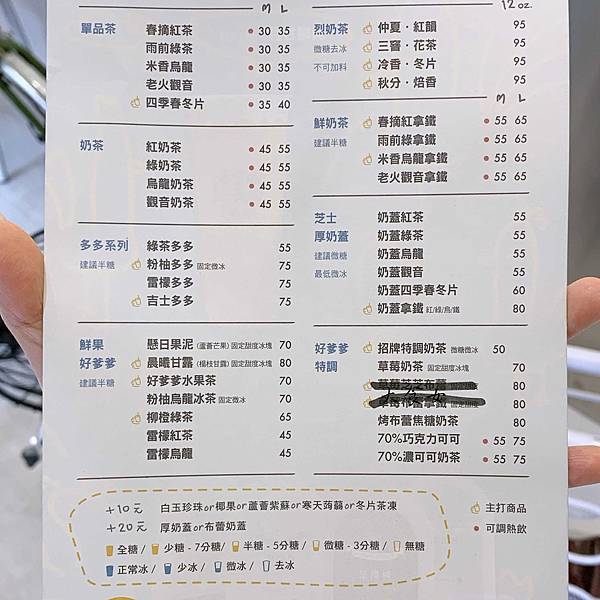 M L
單品茶 春摘紅茶 30 35
雨前綠茶 30 35
米香烏龍 30 35
老火觀音 30 35
四季春冬片 35 40
奶茶 紅奶茶 45 55
綠奶茶 45 55
烏龍奶茶 45 55
觀音奶茶 45 55
多多系列 綠茶多多 55
建議半糖 粉柚多多 固定微冰 75
雷檬多多 75
吉士多多 75
鮮果 懸日果泥 (蘆薈芒果) 固定甜度冰塊 70
好爹爹 晨曦甘露 (楊枝甘露) 固定甜度冰塊 80
建議半糖 好爹爹水果茶 70
粉柚烏龍冰茶 固定微冰 70
柳橙綠茶 65
雷檬紅茶 45
雷檬烏龍 45
12oz.
烈奶茶 仲夏·紅韻 95
微糖去冰 三窨·花茶 95
不可加料 冷香·冬片 95
秋分·焙香 95
M L
鮮奶茶 春摘紅拿鐵 55 65
建議半糖 雨前綠拿鐵 55 65
米香烏龍拿鐵 55 65
老火觀音拿鐵 55 65
芝士 奶蓋紅茶 55
厚奶蓋 奶蓋綠茶 55
建議微糖 奶蓋烏龍 55
最低微冰 奶蓋觀音 55
奶蓋四季春冬片 60
奶蓋拿鐵 紅/綠/烏/鐵 80
好爹爹 招牌特調奶茶 微糖微冰 50
特調 草莓奶茶 固定甜度冰塊 70
80
草莓布蕾拿鐵 固定甜度 80
烤布蕾焦糖奶茶 80
70%巧克力可可 55 75
70%濃可可奶茶 55 75
+10元 白玉珍珠or椰果or蘆薈紫蘇or寒天蒟蒻or冬片茶凍
+20元 厚奶蓋or布蕾奶蓋
全糖 / 少糖 - 7分糖 / 半糖 - 5分糖 / 微糖 - 3分糖 / 無糖
正常冰 / 少冰 / 微冰 / 去冰
主打商品
可調熱飲